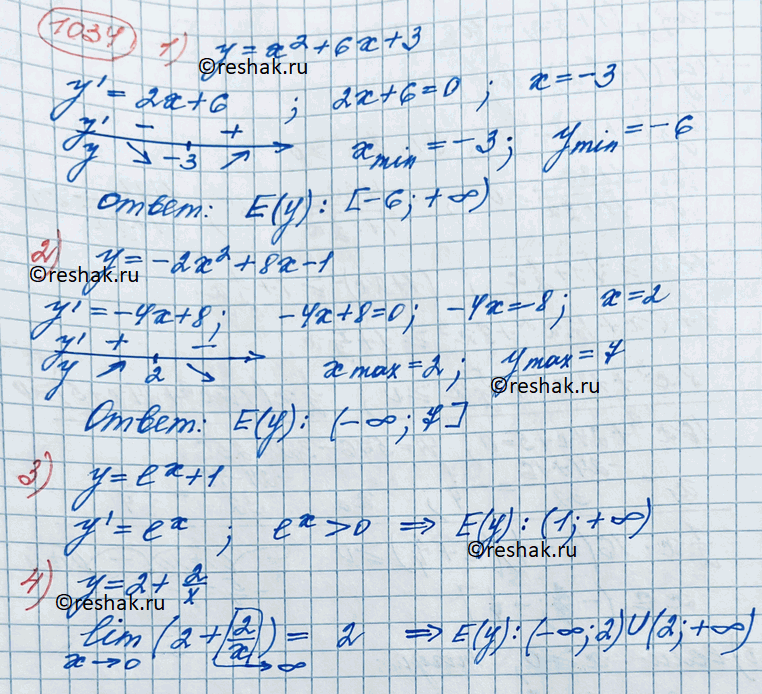 1034 1) y = x² + 6x + 3
©reshak.ru
y' = 2x + 6 ; 2x + 6 = 0 ; x = -3
y' - +
y ↘ -3 ↗ x min = -3; y min = -6
Ответ: E(y): [-6; +∞)
2) y = -2x² + 8x - 1
©reshak.ru
y' = -4x + 8; -4x + 8 = 0; -4x = -8; x = 2
y' + -
y ↗ 2 ↘ x max = 2; y max = 7
©reshak.ru
Ответ: E(y): (-∞; 7]
3) y = e^x + 1
y' = e^x ; e^x > 0 ⇒ E(y): (1; +∞)
©reshak.ru
4) y = 2 + 2/x
©reshak.ru
lim x→0 (2 + 2/x) = 2 ⇒ E(y): (-∞; 2) U (2; +∞)
→∞